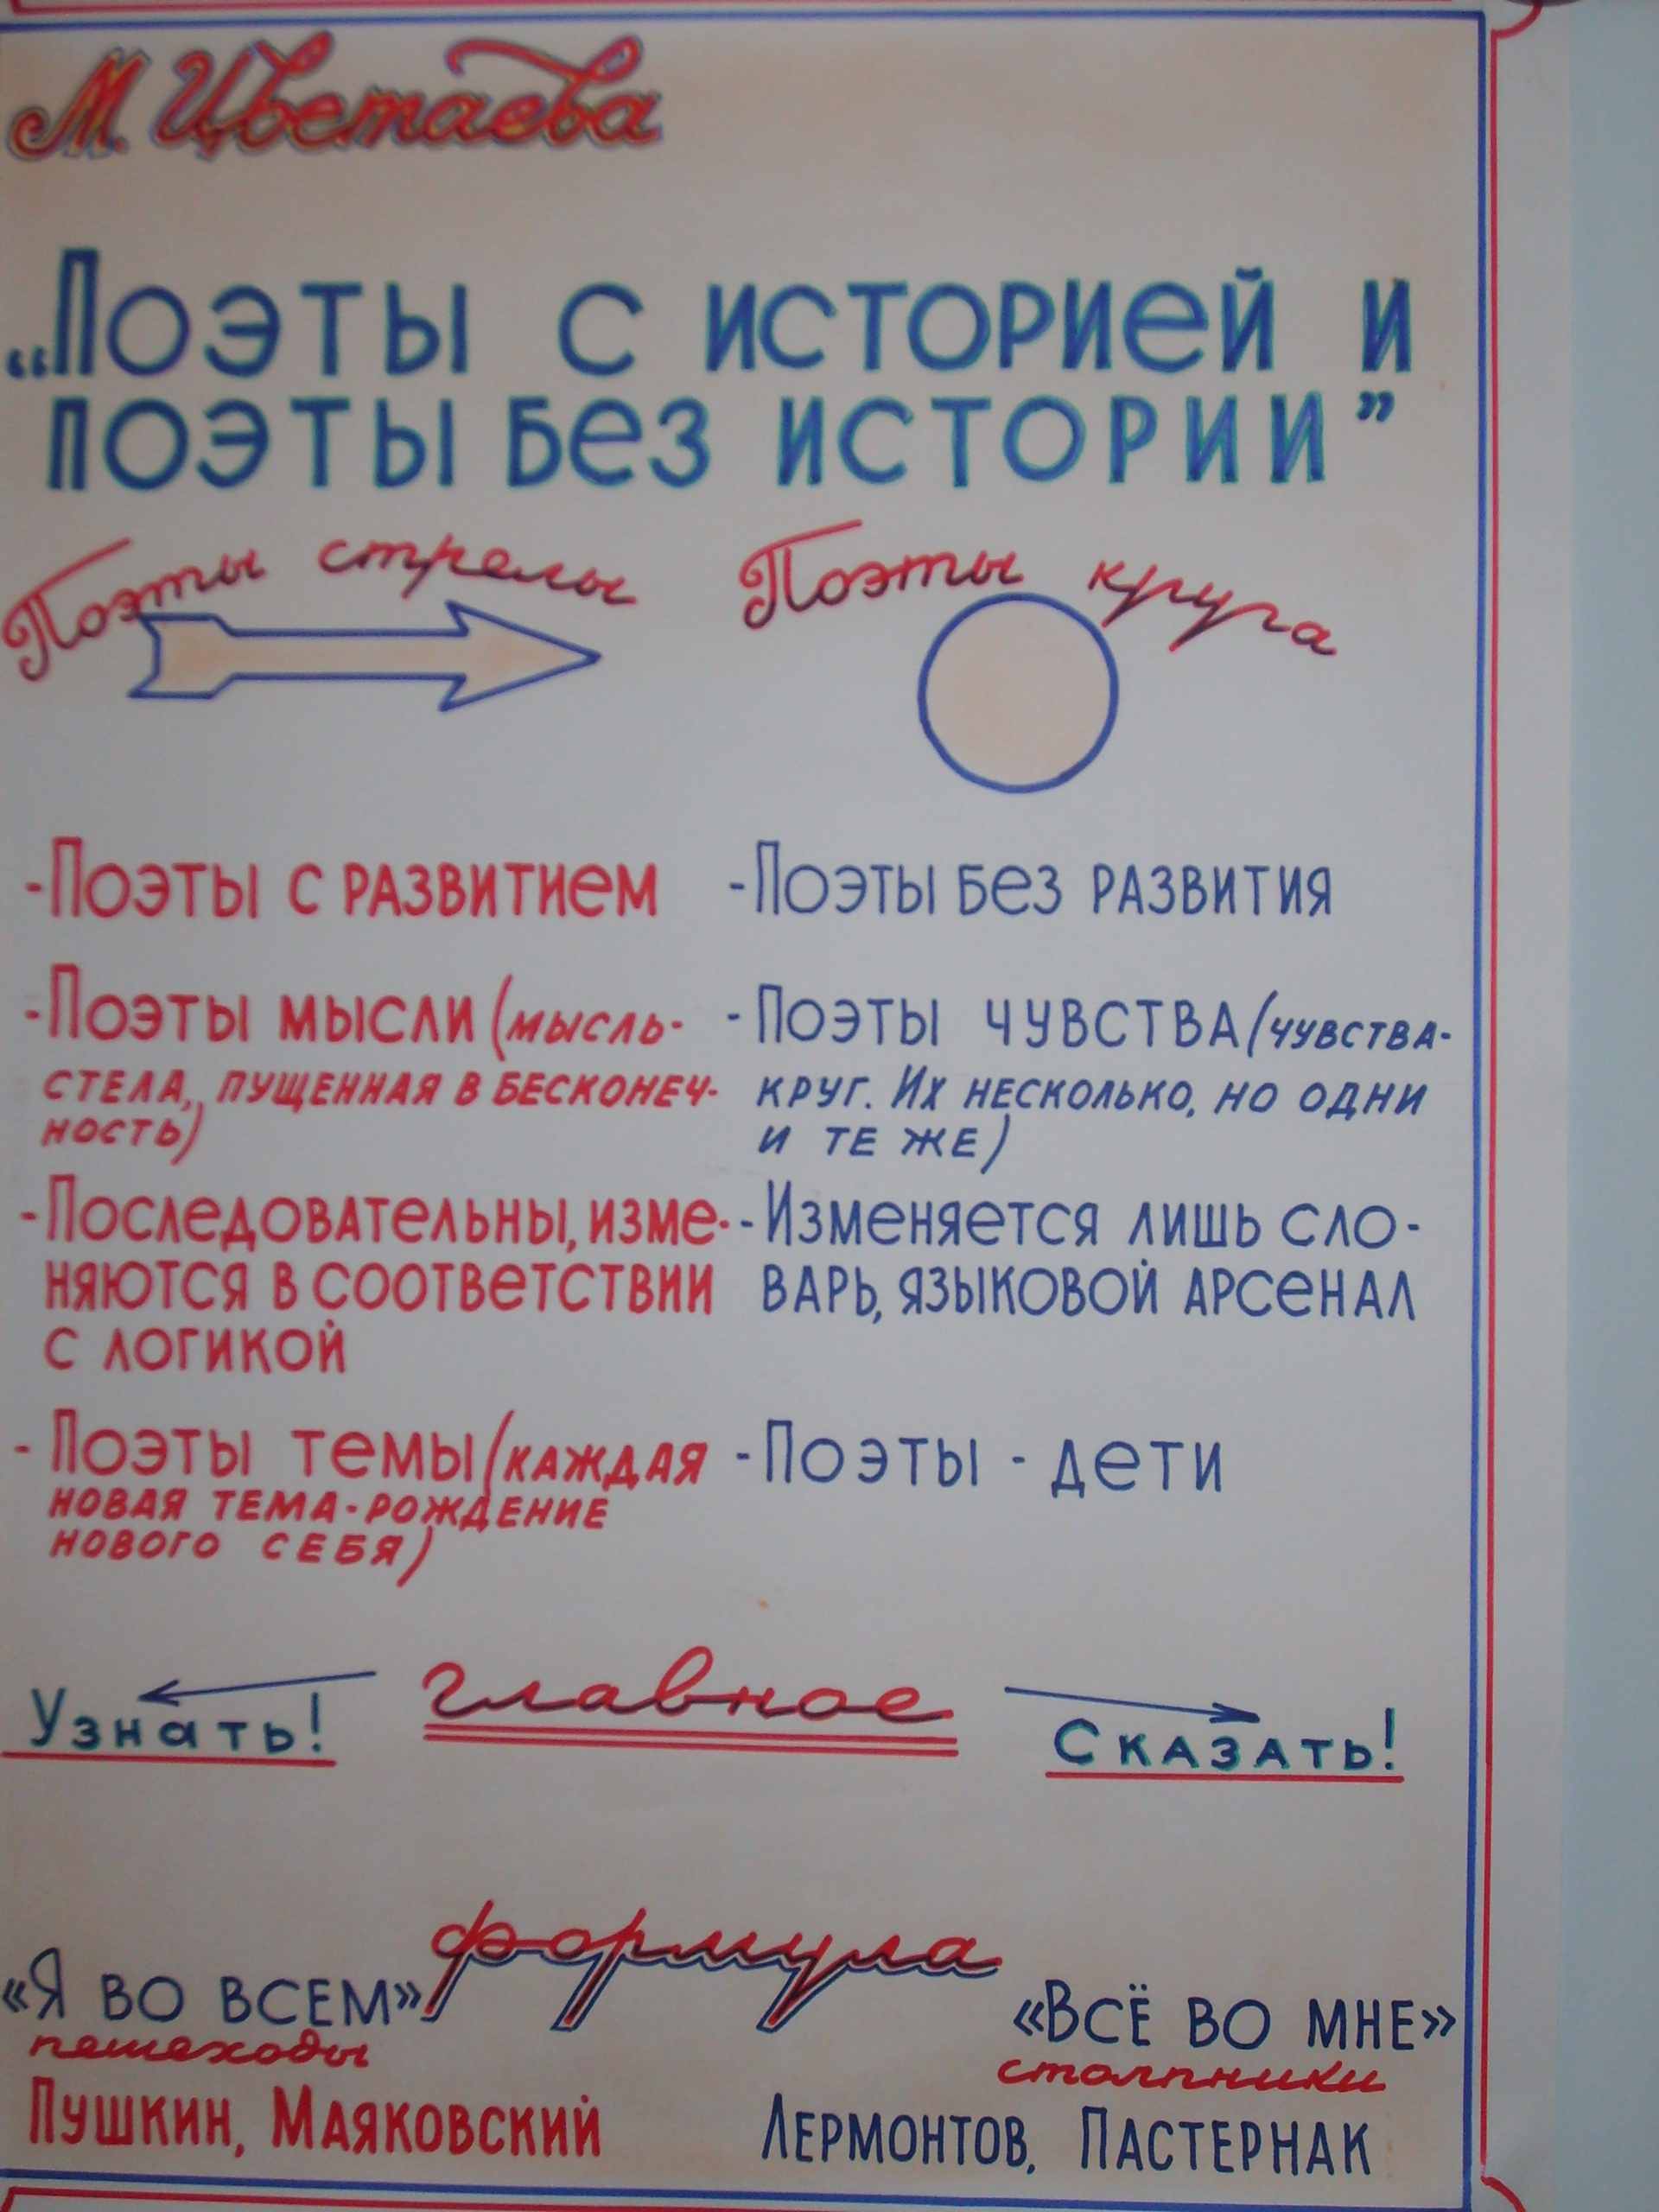 М. Цветаева
„Поэты с историей и
поэты без истории”
Поэты стрелы
Поэты круга
-Поэты с развитием
-Поэты мысли (мысль-
стела, пущенная в бесконеч-
ность)
-Последовательны, изме-
няются в соответствии
с логикой
-Поэты темы (каждая
новая тема-рождение
нового себя)
-Поэты без развития
-Поэты чувства (чувства-
круг. Их несколько, но одни
и те же)
-Изменяется лишь сло-
варь, языковой арсенал
-Поэты - дети
главное
Узнать!
Сказать!
формула
«Я во всем»
пешеходы
Пушкин, Маяковский
«Всё во мне»
столпники
Лермонтов, Пастернак